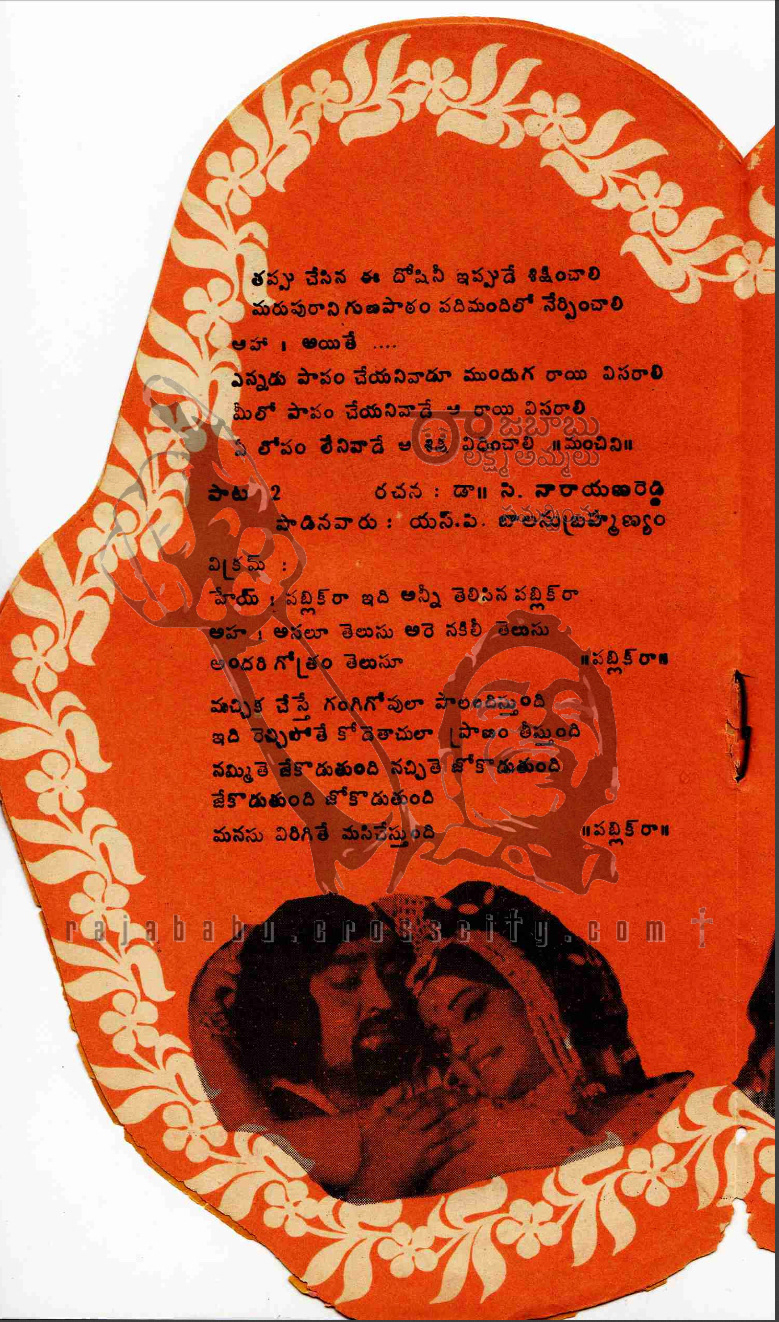 తప్పు చేసిన ఈ దోషినీ ఇప్పుడే శిక్షించాలి
మరుపురాని గుణపాఠం పదిమందిలో నేర్పించాలి
ఆహా । అయితే ....
ఎన్నడు పాపం చేయనివాడూ ముందుగ రాయి విసరాలి
మీలో పాపం చేయనివాడే ఆ రాయి విసరాలి
ఏ లోపం లేనివాడే ఆ శిక్ష విధించాలి ॥మంచిని॥
రాజబాబు
లక్ష్మీ అమ్మలు
పాట 2 రచన : డా॥ సి. నారాయణరెడ్డి
పాడినవారు : యస్.పి. బాలసుబ్రహ్మణ్యం
విక్రమ్ :
హేయ్ : పబ్లిక్‌రా ఇది అన్నీ తెలిసిన పబ్లిక్‌రా
అహ : అసలూ తెలుసు అరె నకిలీ తెలుసు
అందరి గోత్రం తెలుసూ ॥పబ్లిక్ రా॥
మచ్చిక చేస్తే గంగిగోవులా పాలందిస్తుంది
ఇది రెచ్చిపోతే కోడెతాచులా ప్రాణం తీస్తుంది
నమ్మితె జేకొడుతుంది నచ్చితె జోకొడుతుంది
జేకొడుతుంది జోకొడుతుంది
మనసు విరిగితే మసిచేస్తుంది ॥పబ్లిక్ రా॥
rajababu.crosscity.com